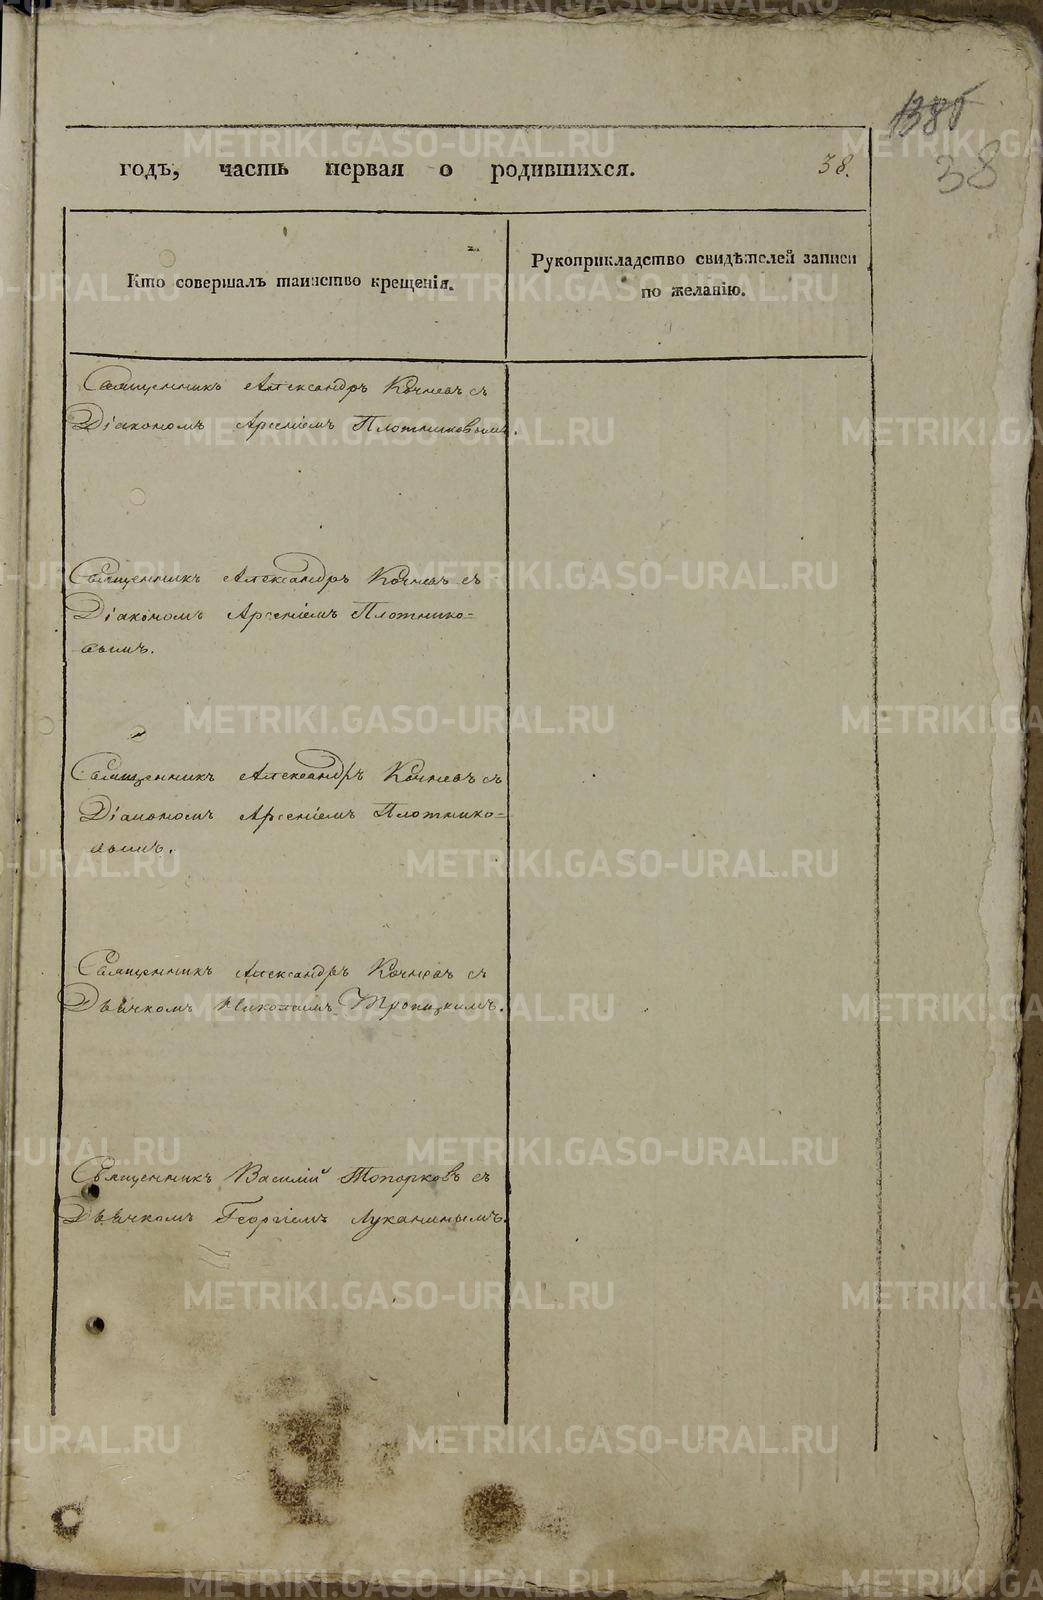 1385
38
годъ, часть первая о родившихся. 38.
Кто совершалъ таинство крещенія.
Рукоприкладство свидѣтелей записи
по желанію.
Священникъ Александръ Кочневъ съ
Діакономъ Арсеніемъ Плотниковымъ.
Священникъ Александръ Кочневъ съ
Діакономъ Арсеніемъ Плотнико=
вымъ.
Священникъ Александръ Кочневъ съ
Діакономъ Арсеніемъ Плотнико=
вымъ.
Священникъ Александръ Кочневъ съ
Дьячкомъ Николаемъ Троицкимъ.
Священникъ Василій Топорковъ съ
Дьячкомъ Георгіемъ Луканинымъ.
METRIKI.GASO-URAL.RU